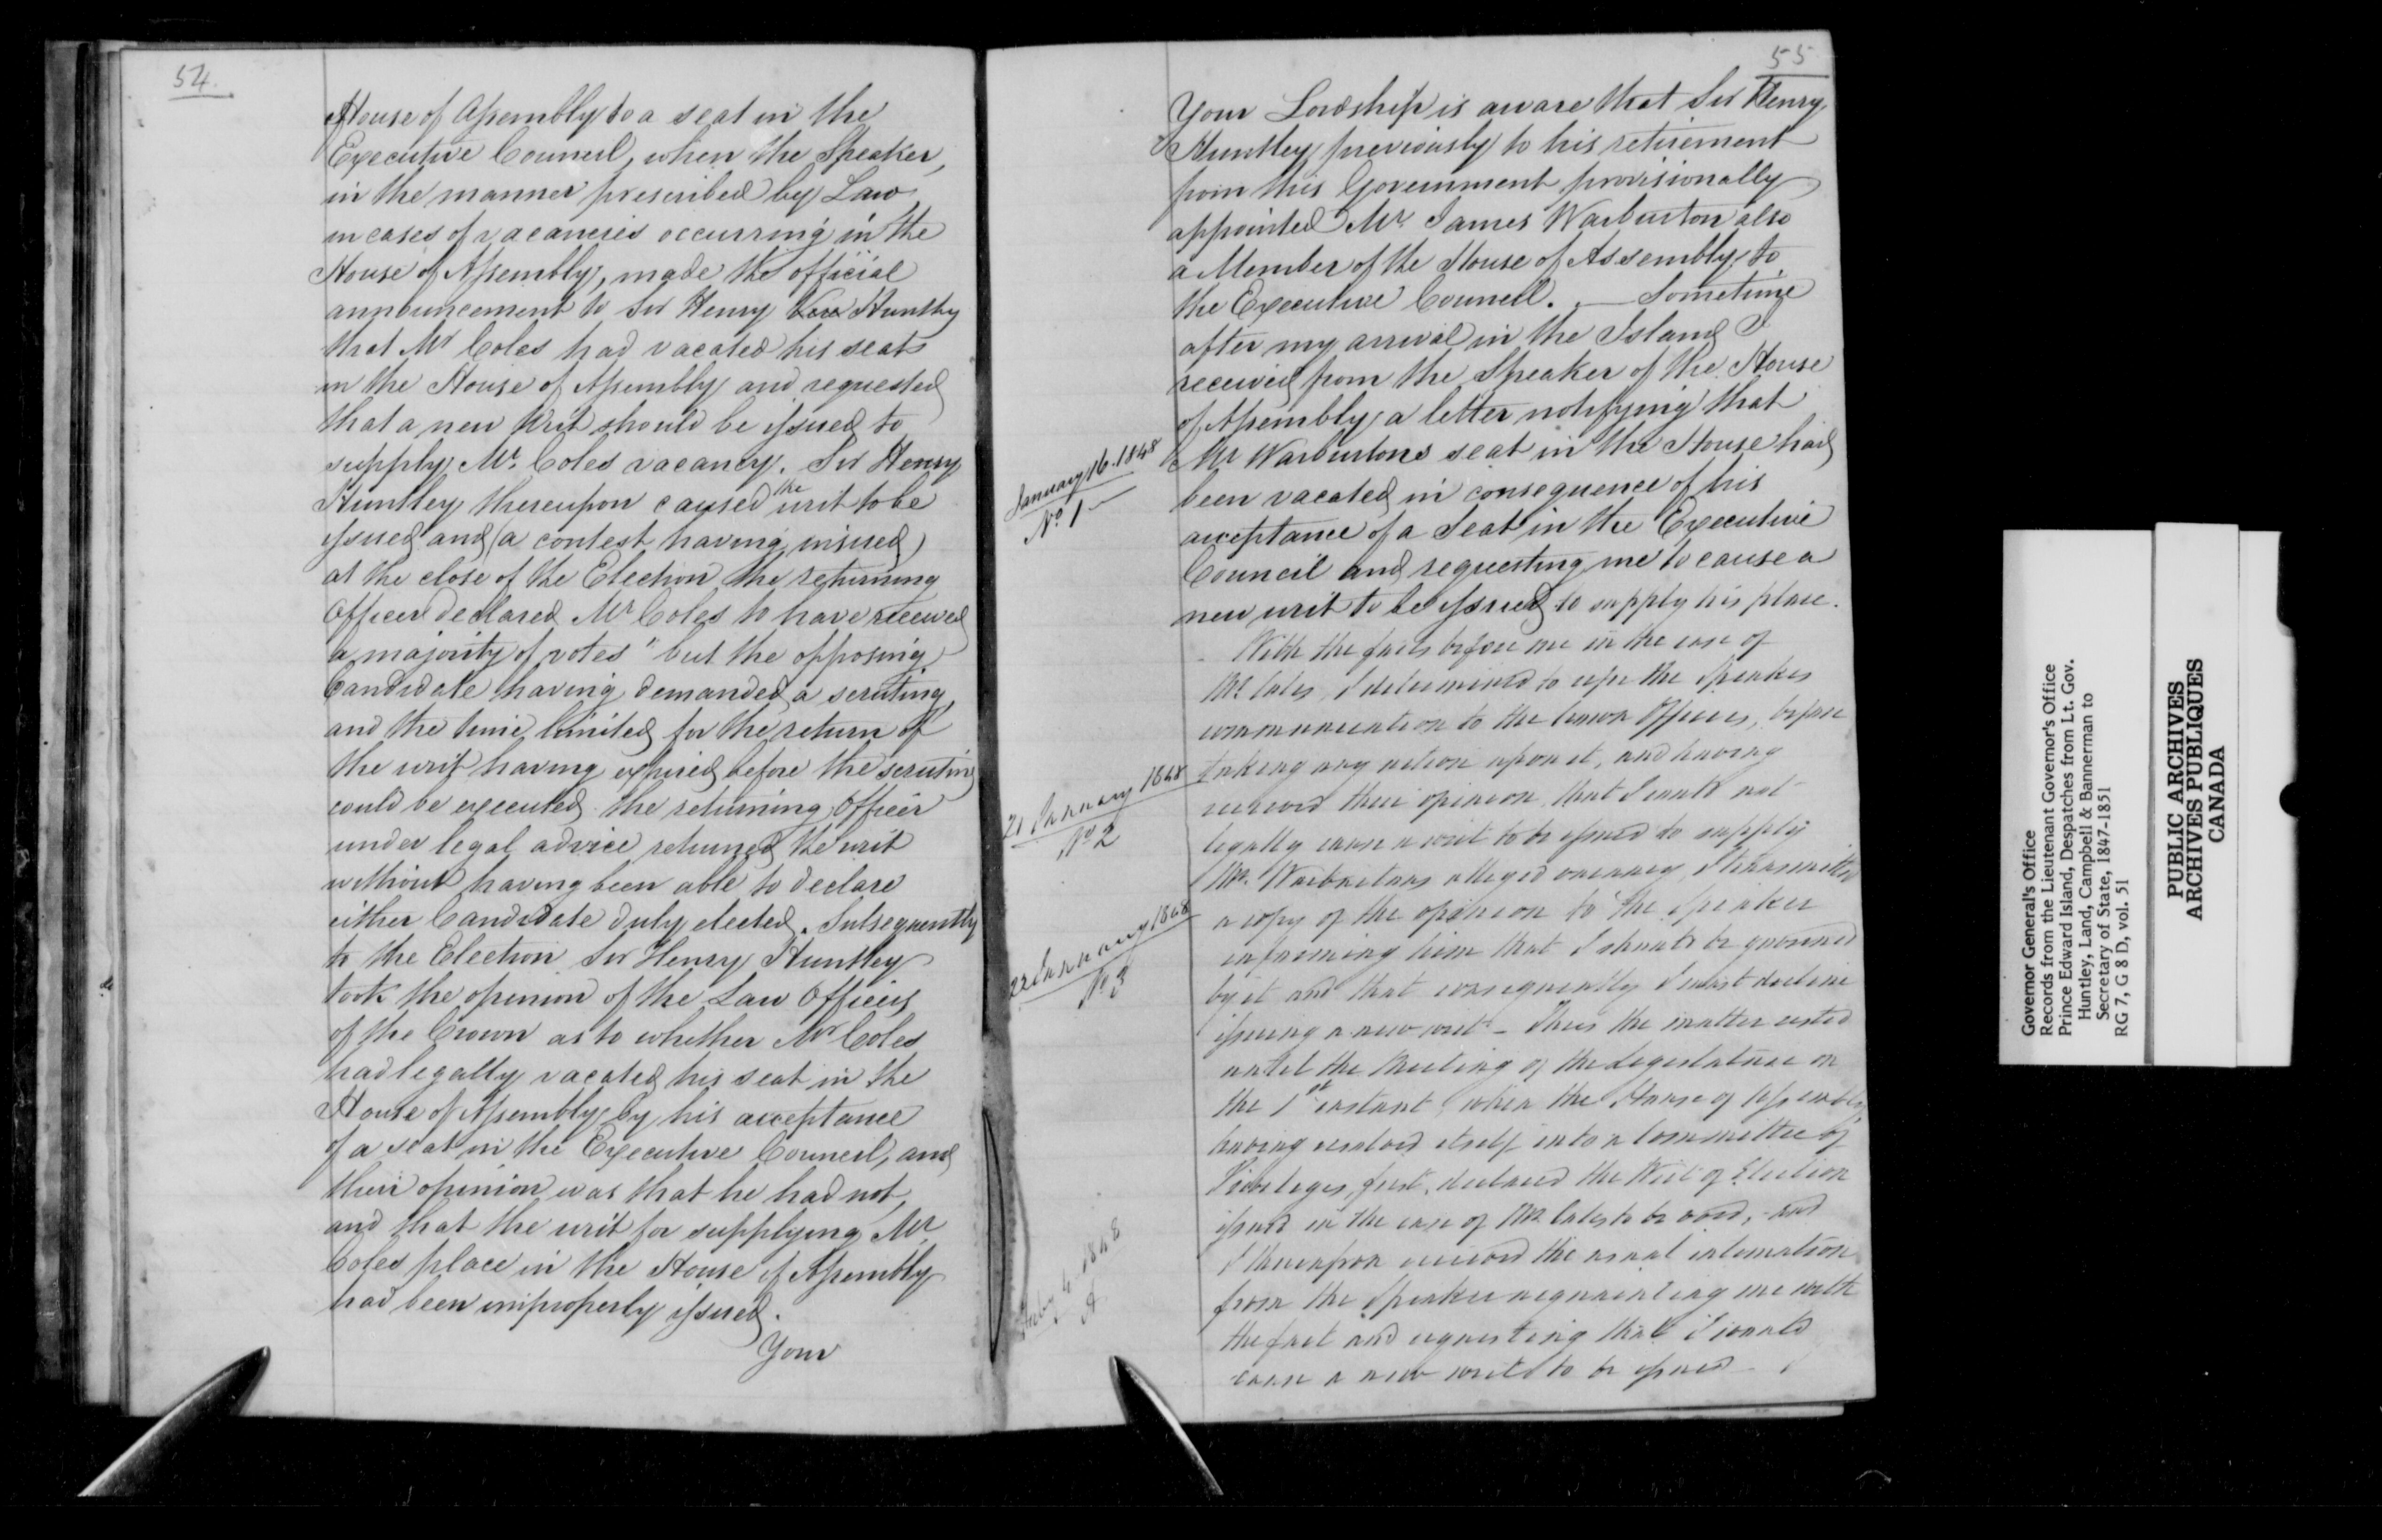 54.
House of Assembly to a seat in the
Executive Council, when the Speaker,
in the manner prescribed by Law
in cases of vacancies occurring in the
House of Assembly, made the official
announcement to Sir Henry Vere Huntley
that Mr Coles had vacated his seat
in the House of Assembly and requested
that a new Writ should be issued to
supply Mr. Coles vacancy. Sir Henry
Huntley thereupon caused the writ to be
issued and (a contest having insued)
at the close of the Election the returning
Officer declared Mr Coles to have received
a majority of votes" but the opposing
Candidate having demanded a scrutiny,
and the time limited for the return of
the writ having expired before the scrutiny
could be executed the returning Officer
under legal advice returned the writ
without having been able to declare
either Candidate duly elected. Subsequently
to the Election Sir Henry Huntley
took the opinion of the Law Officers
of the Crown as to whether Mr Coles
had legally vacated his seat in the
House of Assembly by his acceptance
of a seat in the Executive Council, and
their opinion was that he had not,
and that the writ for supplying Mr
Coles place in the House of Assembly
had been improperly issued.
Your
55
Your Lordship is aware that Sir Henry
Huntley previously to his retirement
from this Government provisionally
appointed Mr James Warburton also
a Member of the House of Assembly to
the Executive Council. — Sometime
after my arrival in the Island I
received from the Speaker of the House
of Assembly a letter notifying that
January 16. 1848
No 1
Mr Warburtons seat in the House had
been vacated in consequence of his
acceptance of a Seat in the Executive
Council and requesting me to cause a
new writ to be issued to supply his place.
With the facts before me in the case of
Mr. Coles, I determined to refer the Speakers
communication to the Crown Officers, before
taking any action upon it, and having
21 January 1848
No 2
received their opinion that I could not
legally cause a writ to be issued to supply
Mr. Warburtons alleged vacancy, I transmitted
22 January 1848
No 3
a copy of the opinion to the Speaker
informing him that I should be governed
by it and that consequently I must decline
issuing a new writ - Thus the matter rested
until the Meeting of the Legislature on
the 1st instant, when the House of Assembly
having resolved itself into a Committee of
Privileges, first, declared the Writ of Election
issued in the case of Mr. Coles to be void, and
Feby 4. 1848
A
I thereupon received the usual intimation
from the Speaker acquainting me with
the fact and requesting that I would
cause a new writ to be issued - I
Governor General's Office
Records from the Lieutenant Governor's Office
Prince Edward Island, Despatches from Lt. Gov.
Huntley, Land, Campbell & Bannerman to
Secretary of State, 1847-1851
RG 7, G 8 D, vol. 51
PUBLIC ARCHIVES
ARCHIVES PUBLIQUES
CANADA